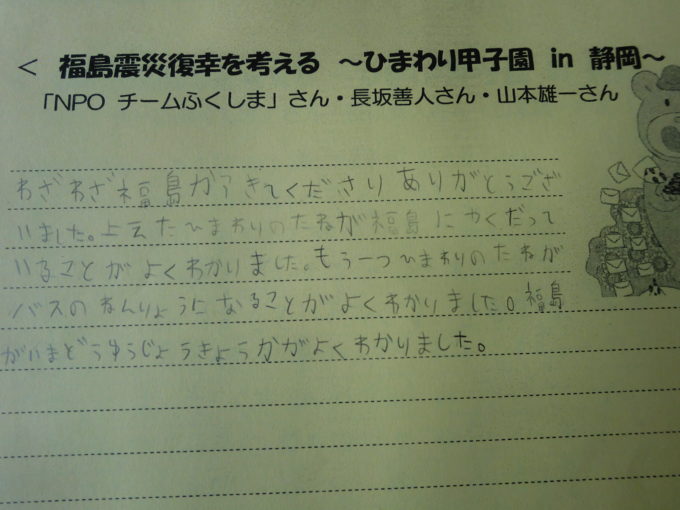 ＜ 福島震災復幸を考える ～ひまわり甲子園 in 静岡～
「NPO チームふくしま」さん・長坂善人さん・山本雄一さん
わざわざ福島から来てくださりありがとうござ
いました。上元たひまわりのたねが福島にやくだって
いることがよくわかりました。もう一つひまわりのたねが
バスのねんりょうになることがよくわかりました。福島
がいまどうゆうじょうきょうかがよくわかりました。